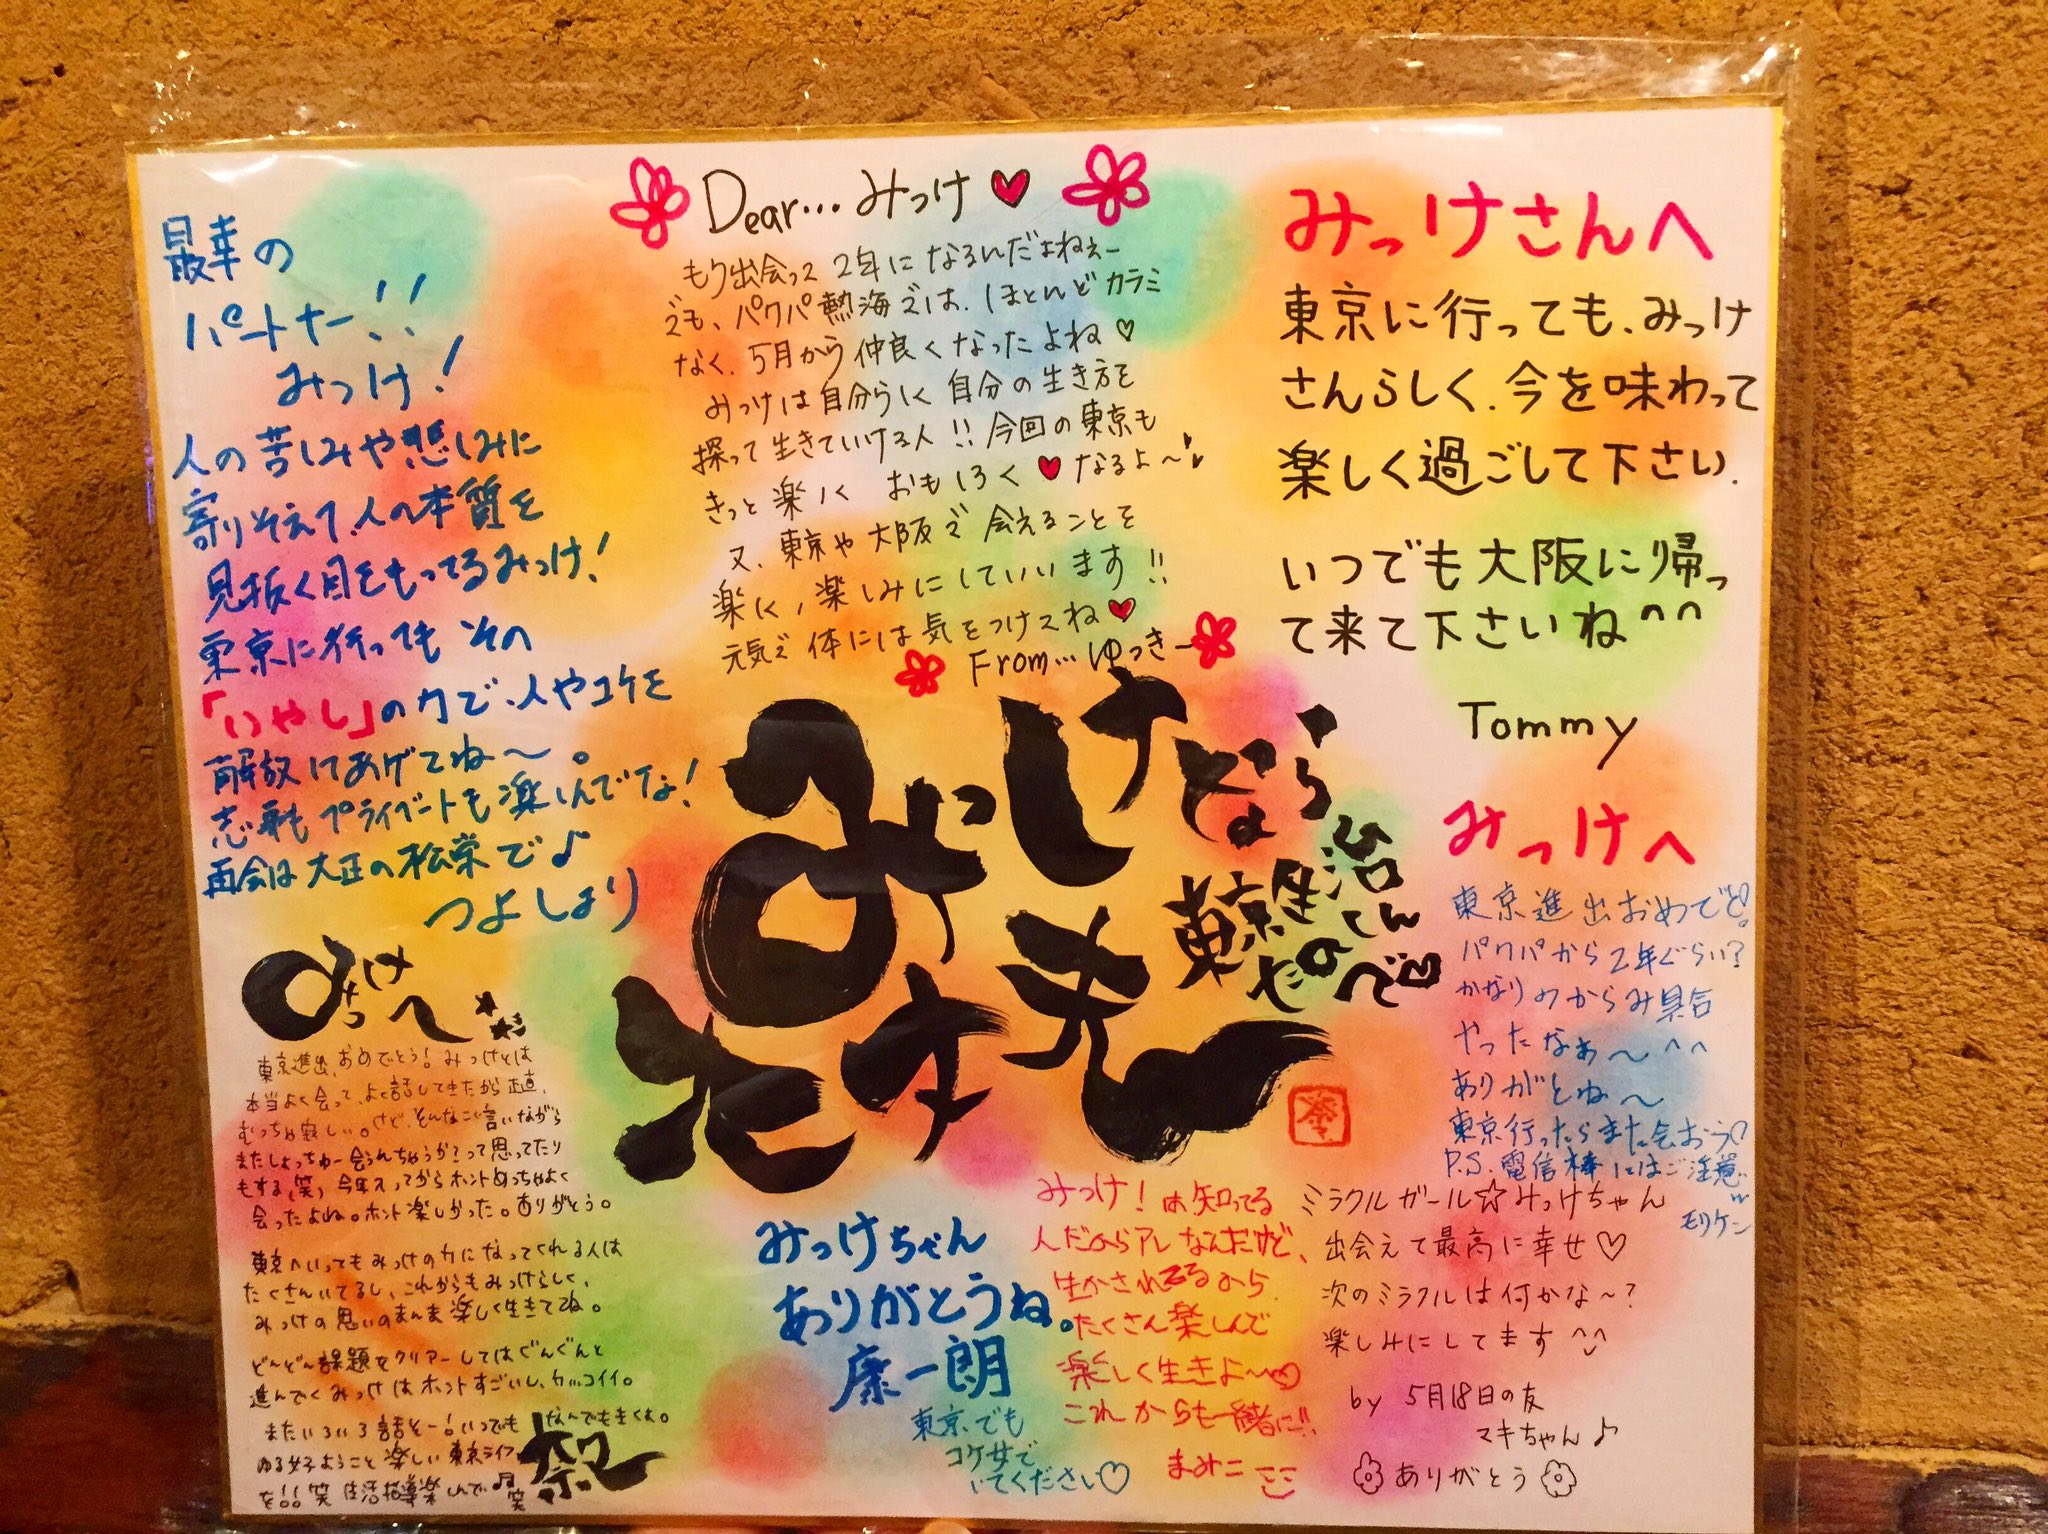 最幸の
パートナー!!
みっけ!
人の苦しみや悲しみに
寄りそえて、人の本質を
見抜く目をもってるみっけ!
東京に行っても その
「いやし」の力で、人やコケを
解放してあげてね〜。
志事も プライベートも楽しんでな!
再会は大正の松栄で♪
つよしより
Dear…みっけ♥
もう出会って2年になるんだよねぇー
でも、パワパ熱海では、ほとんどカラミ
なく、5月から仲良くなったよね♡
みっけは自分らしく自分の生き方を
探って生きていける人!!今回の東京も
きっと楽しく おもしろく♥なるよ〜
又、東京や大阪で会えることを
楽しく、楽しみにしています!!
元気で体には気をつけてね♥
From…ゆっきー
みっけさんへ
東京に行っても、みっけ
さんらしく、今を味わって
楽しく過ごして下さい.
いつでも大阪に帰っ
て来て下さいね^^
Tommy
みっけ
なら
東京生活
たのしん
で
みっけへ
東京進出おめでとう!
パワパから2年ぐらい?
かなりのからみ具合
やったなぁ〜^^
ありがとね〜
東京行ったらまた会おう♡
P.S.電信棒にはご注意w
モリケン
みっけへ
東京進出、おめでとう!みっけとは
本当よく会って、よく話してきたから正直、
むっちゃ寂しい。けど、そんなこと言いながら
またしょっちゅー会うんちゃうか?って思ってたり
もする(笑)今年入ってからホントめっちゃよく
会ったよね。ホント楽しかった。ありがとう。
東京へいってもみっけの力になってくれる人は
たくさんいてるし、これからもみっけらしく、
みっけの思いのまんま楽しく生きてね。
どんどん課題をクリアーしてはぐんぐんと
進んでくみっけはホントすごいし、カッコイイ。
またいろいろ話そー!いつでもなんでもきくよ。
楽しい東京ライフ
を!!笑
みっけちゃん
ありがとうね。
康一朗
東京でも
コケ女で
いてください♡
みっけ!は知ってる
人だからアレなんだけど、
生かされてるから、
たくさん楽しんで
楽しく生きよ〜♡
これからも一緒に!!
まみこ
ミラクルガール☆みっけちゃん
出会えて最高に幸せ♡
次のミラクルは何かな〜?
楽しみにしてます^^
by 5月18日の友
マキちゃん♪
ありがとう